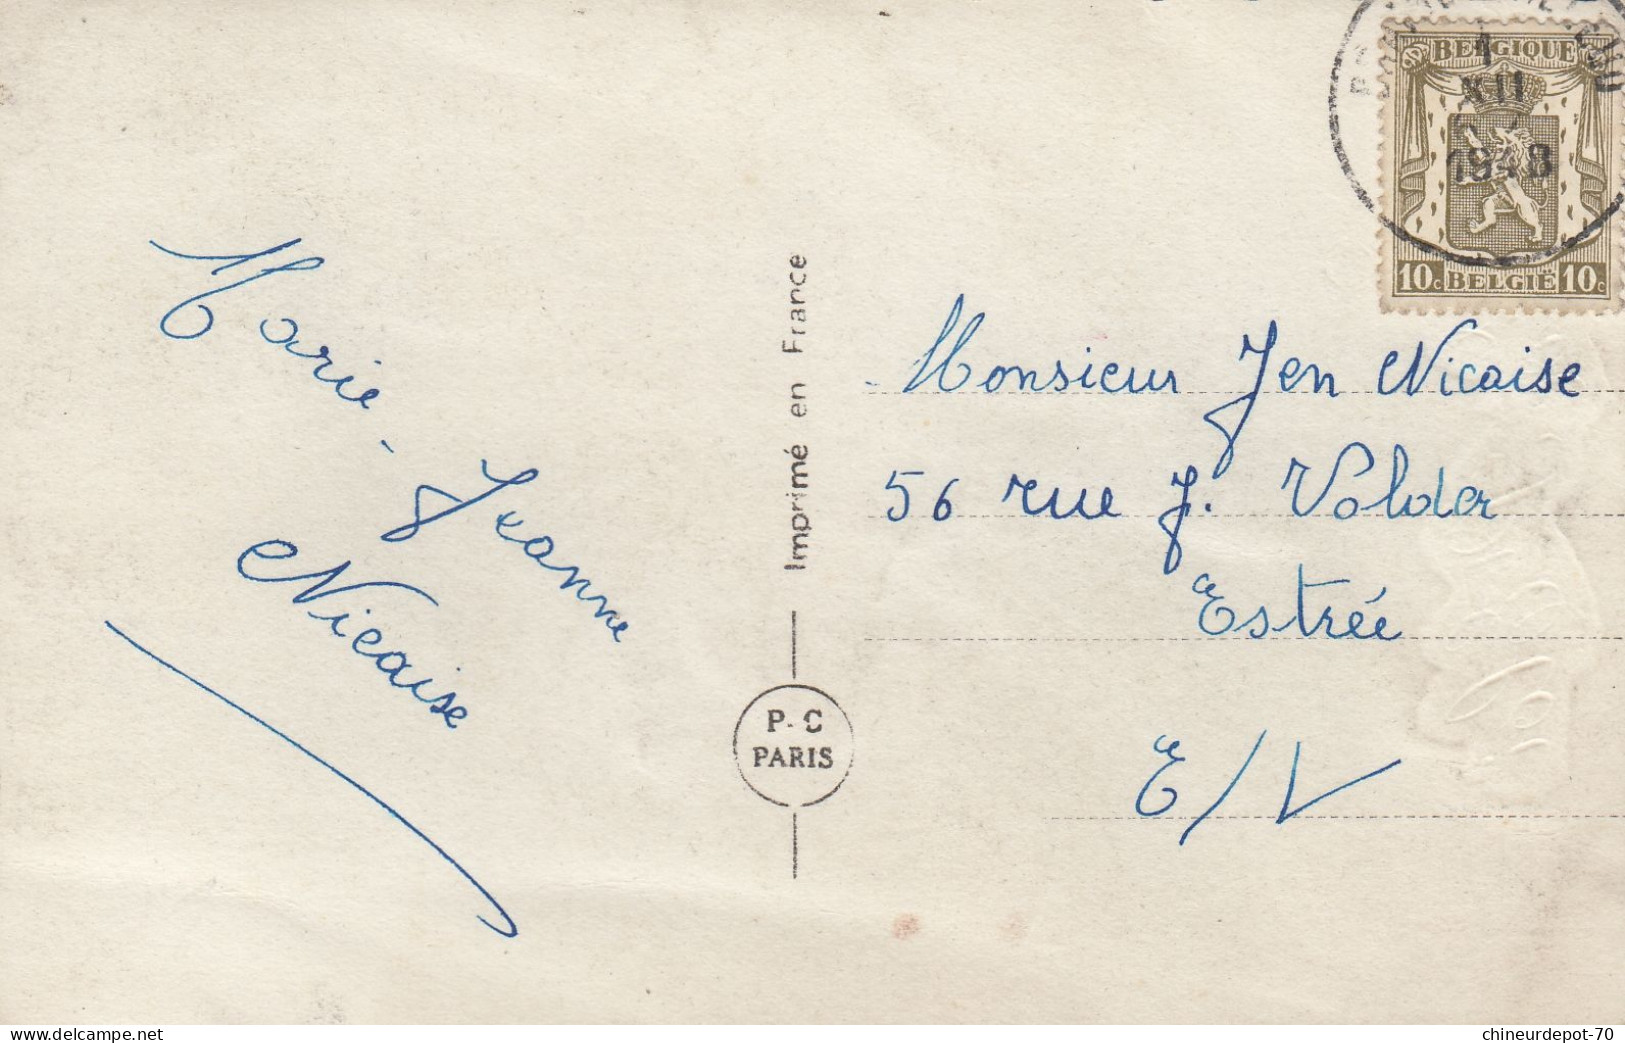 BELGIQUE
1
XII
1948
10c BELGIË 10c
Marie-Jeanne
Nicaise
Imprimé en France
P-C
PARIS
Monsieur Jen Nicaise
56 rue J. Volder
Estrée
E/V
www.delcampe.net
chineurdepot-70